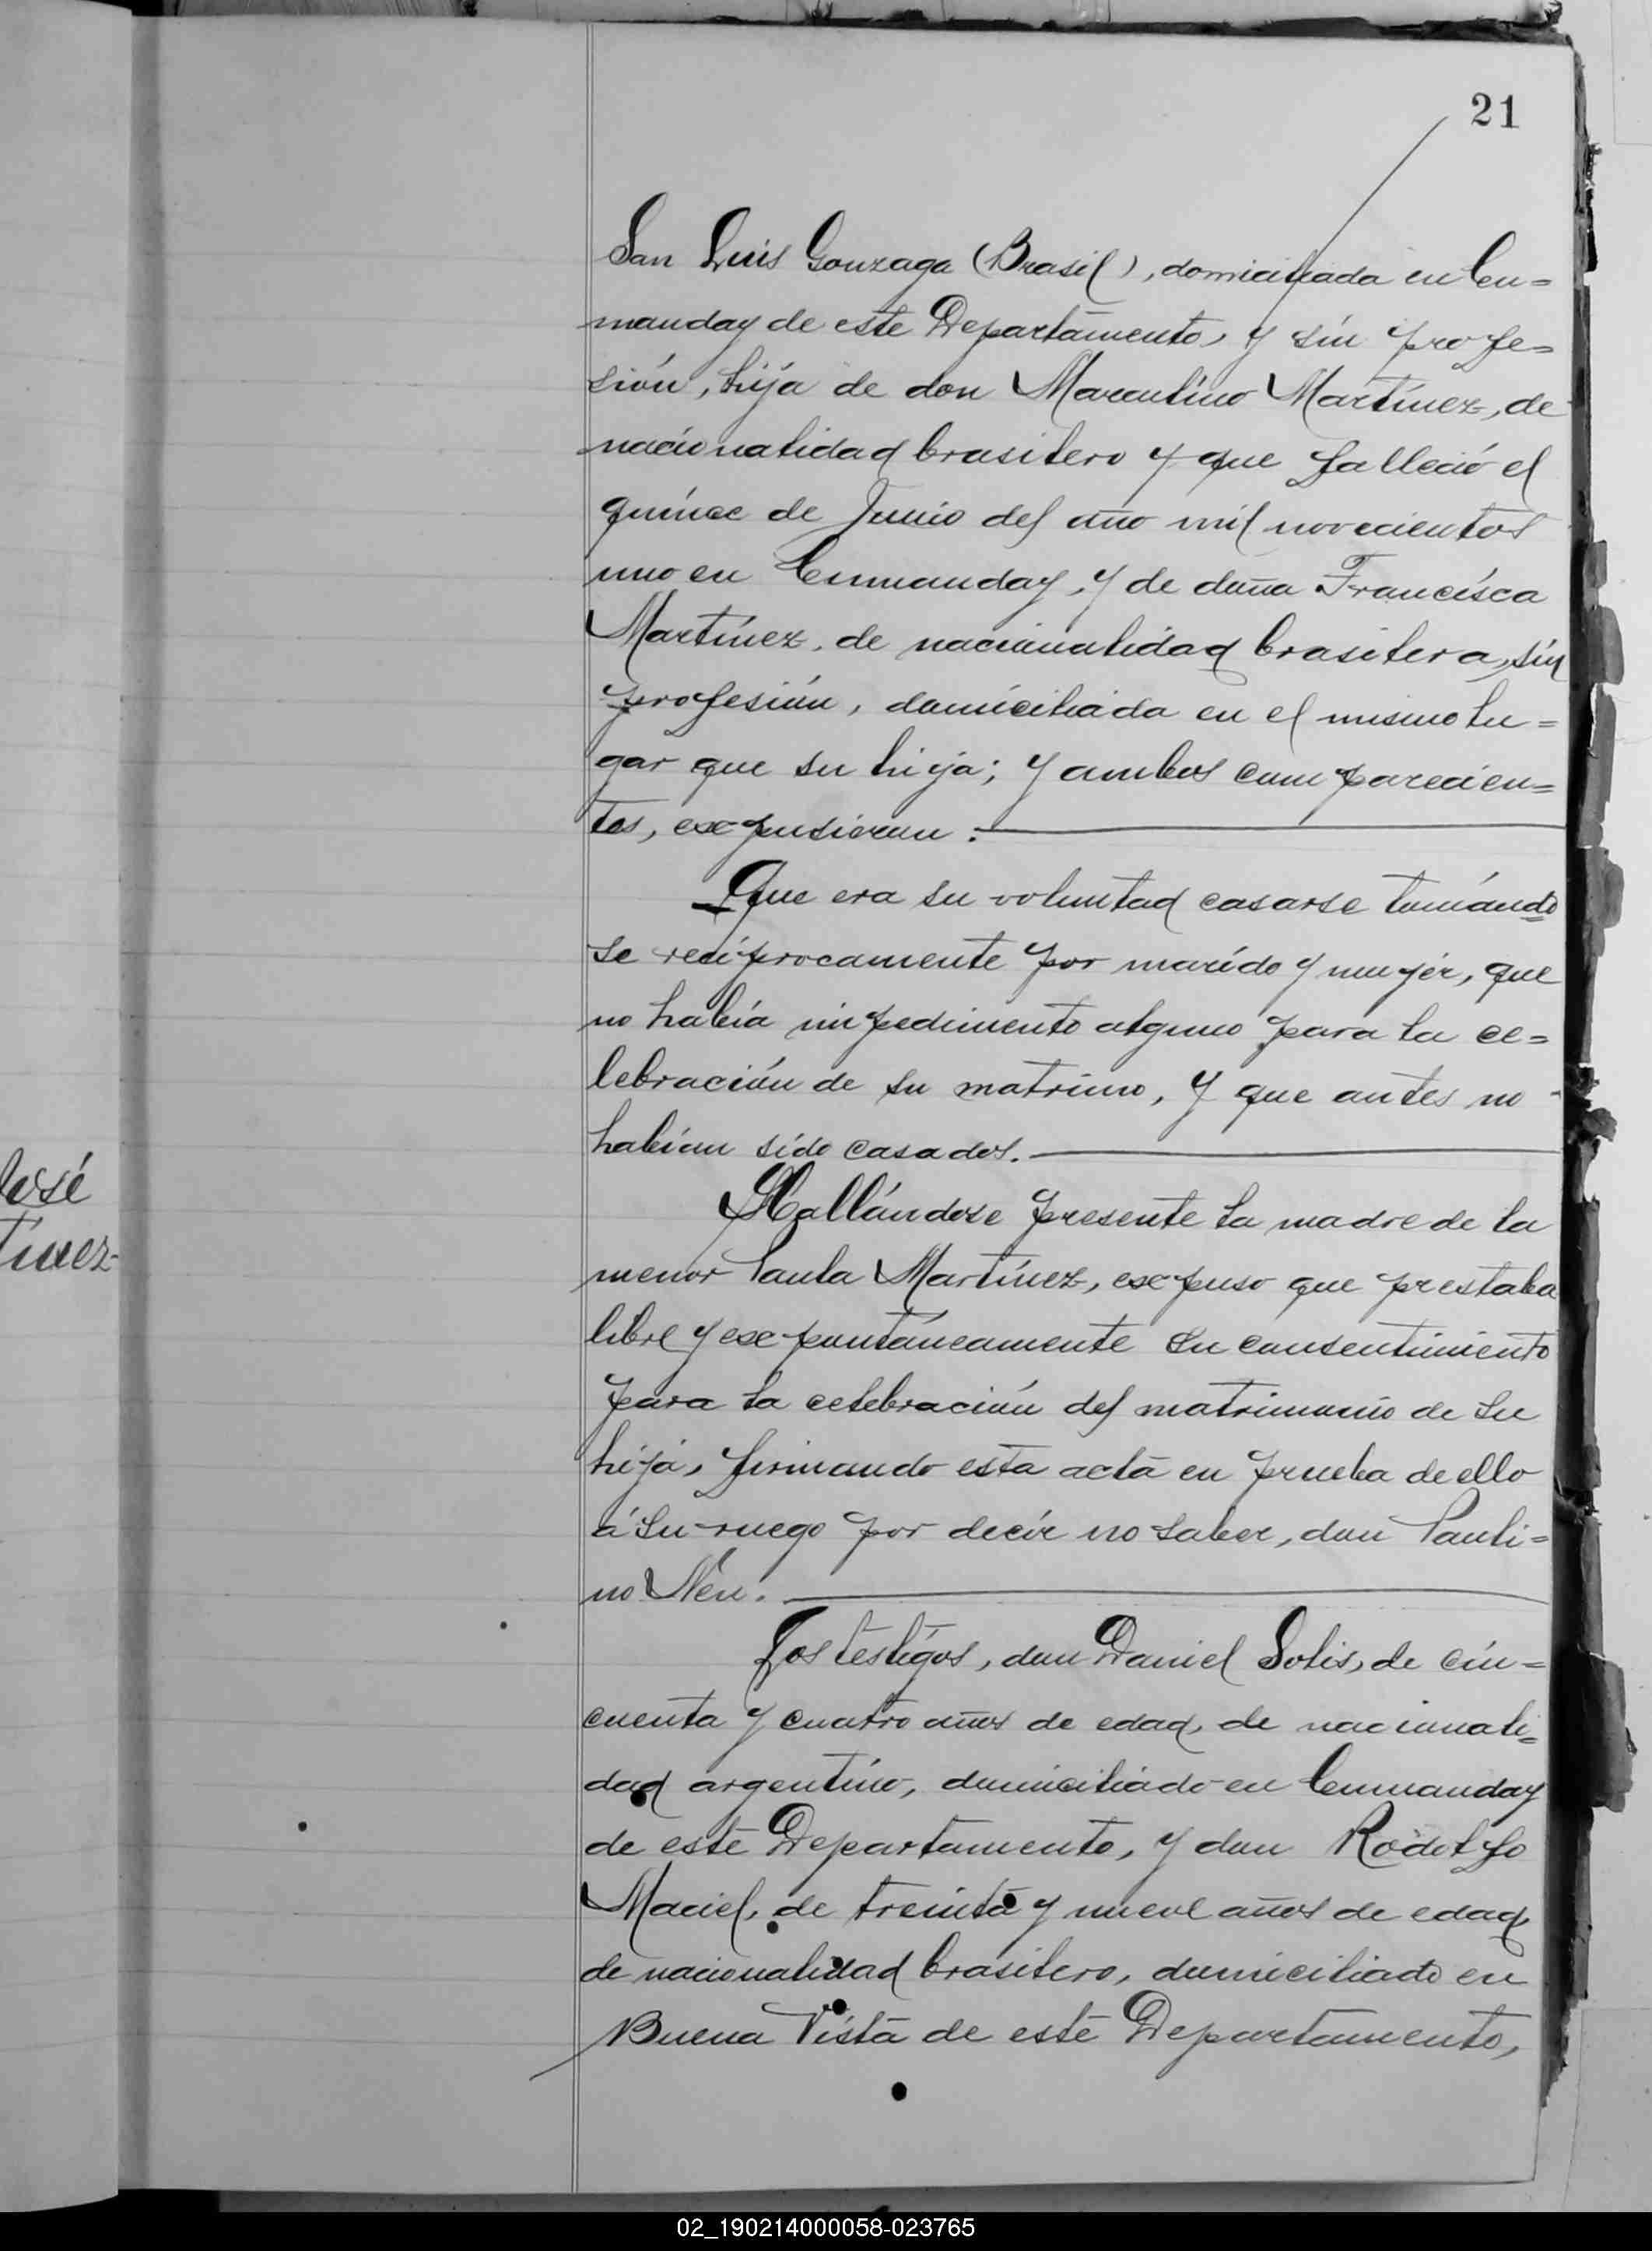 21
San Luis Gonzaga (Brasil), domiciliada en Cun=
manday de este Departamento, y sin profe=
sión, hija de don Marculino Martínez, de
nacionalidad brasilero y que falleció el
quince de Junio del año mil novecientos
uno en Cunmanday, y de doña Francisca
Martínez, de nacionalidad brasilera, sin
profesión, domiciliada en el mismo lu=
gar que su hija; y ambos comparecien=
tes, expusieron:
Que era su voluntad casarse tomándo
se recíprocamente por marido y mujer, que
no había impedimento alguno para la ce=
lebración de su matrimo, y que antes no
habían sido casados.
Hallándose presente la madre de la
menor Paula Martínez, expuso que prestaba
libre y expontáneamente su consentimiento
para la celebración del matrimonio de su
hija, firmando esta acta en prueba de ello
á su ruego por decir no saber, don Pauli=
no Neu.
Los testigos, don Daniel Solis, de cin=
cuenta y cuatro años de edad, de nacionali=
dad argentino, domiciliado en Cunmanday
de este Departamento, y don Rodolfo
Maciel, de treinta y nueve años de edad,
de nacionalidad brasilero, domiciliado en
Buena Vista de este Departamento,
José
tinez
02_190214000058-023765